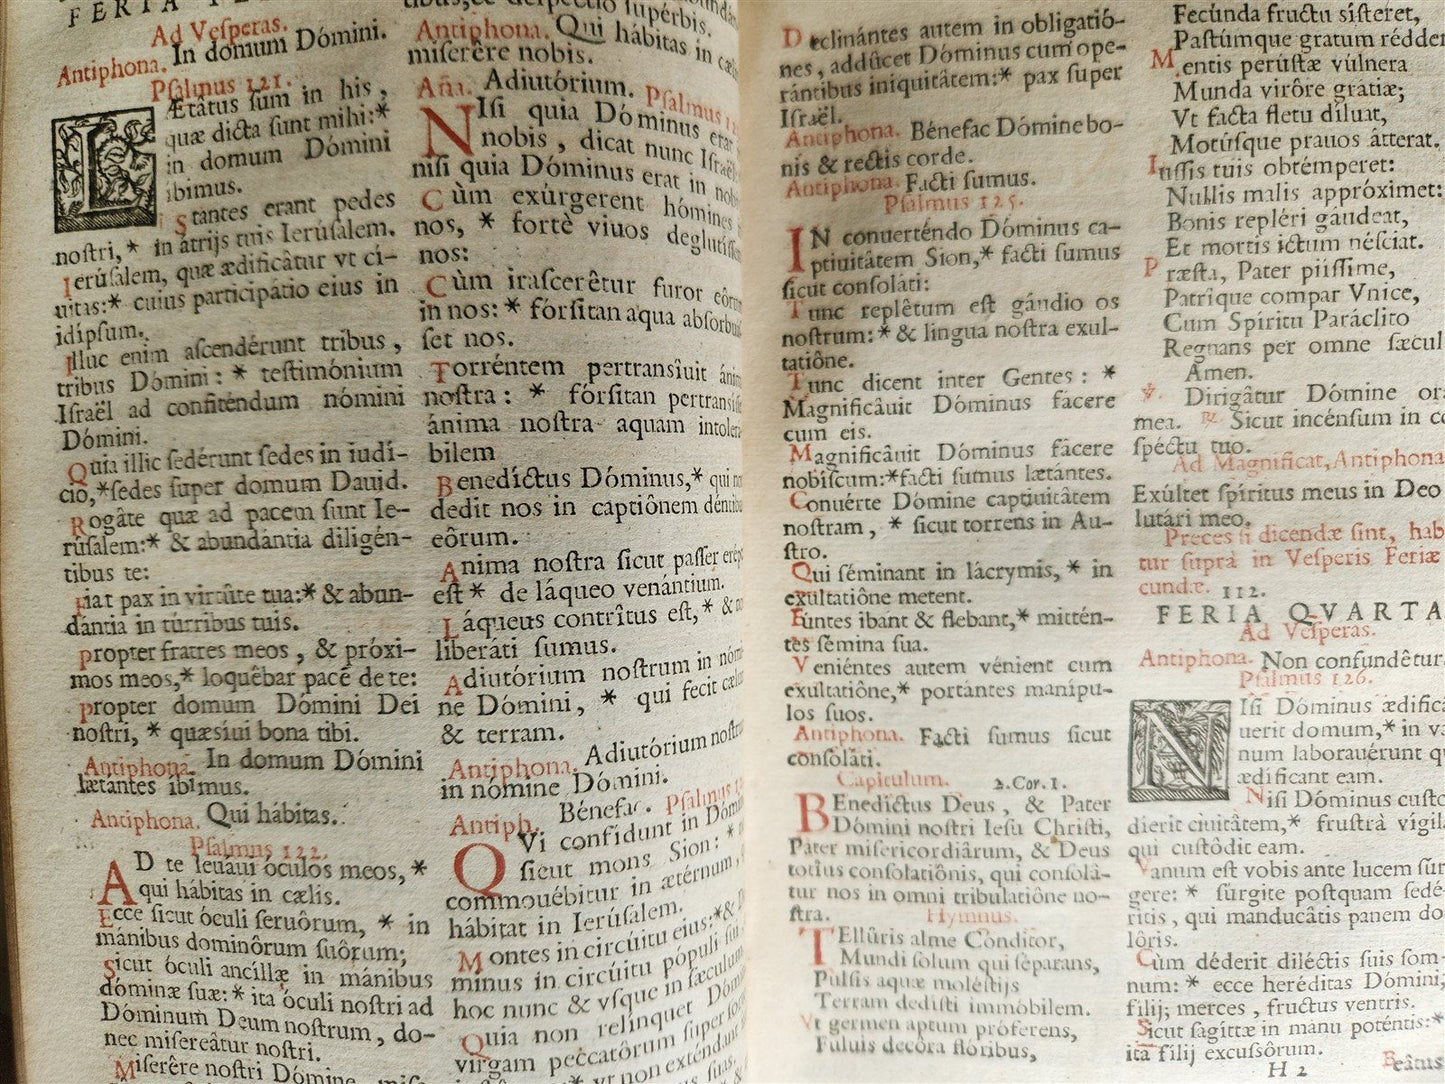 FERIA
Ad Vesperas.
Antiphona. In domum Dómini.
Psalmus 121.
LÆtâtus sum in his,
quæ dicta sunt mihi:*
in domum Dómini
ibimus.
Stantes erant pedes
nostri,* in átrijs tuis Ierúsalem.
Ierúsalem, quæ ædificâtur vt cí-
uitas:* cuius participátio eius in
idípsum.
Illuc enim ascendérunt tribus,
tribus Dómini: * testimónium
Israël ad confiténdum nómini
Dómini.
Quia illic sedérunt sedes in iudí-
cio,*sedes super domum Dauid.
Rogâte quæ ad pacem sunt Ie-
rúsalem:* & abundántia diligén-
tibus te:
Fiat pax in virtûte tua:* & abun-
dántia in túrribus tuis.
propter fratres meos, & próxi-
mos meos,* loquêbar pacẽ de te:
propter domum Dómini Dei
nostri, * quæsíui bona tibi.
Antiphona. In domum Dómini
lætántes íbimus.
Antiphona. Qui hábitas.
Psalmus 122.
AD te leuáui óculos meos,*
qui hábitas in cælis.
Ecce sicut óculi seruôrum, * in
mánibus dominôrum suôrum;
Sicut óculi ancíllæ in mánibus
dóminæ suæ:* ita óculi nostri ad
Dóminum Deum nostrum, do-
nec misereátur nostri.
Miserêre nostri Dómine,
supérbis.
Antiphona. Qui hábitas in cælis
miserêre nobis.
Añа. Adiutórium. Psalmus
NIsi quia Dóminus erat
nobis, dicat nunc Israël
nisi quia Dóminus erat in nobis
Cùm exúrgerent hómines
nos, * fortè viuos deglutíssent
nos:
Cùm irascerêtur furor eórum
in nos:* fórsitan aqua absorbuís-
set nos.
Torréntem pertransîuit ánima
nostra: * fórsitan pertransísset
ánima nostra aquam intolerá-
bilem
Benedíctus Dóminus,* qui non
dedit nos in captiônem déntibus
eôrum.
Anima nostra sicut passer erépta
est * de láqueo venántium.
Láqueus contrîtus est,* & nos
liberáti sumus.
Adiutórium nostrum in nómi-
ne Dómini, * qui fecit cælum
& terram.
Antiphona. Adiutórium nostrum
in nómine Dómini.
Antiph. Bénefac. Psalmus
QVi confídunt in Dómino
sicut mons Sion: *
commouébitur in ætérnum,
hábitat in Ierúsalem.
Montes in circúitu eius:*&
minus in circúitu pópuli sui
hoc nunc & vsque in sæculum.
Quia non relínquet Dóminus
virgam peccatôrum super
* vt non exténdant
Declinántes autem in obligatió-
nes, addûcet Dóminus cum ope-
rántibus iniquitâtem:* pax super
Israël.
Antiphona. Bénefac Dómine bo-
nis & rectis corde.
Antiphona. Facti sumus.
Psalmus 125.
IN conuerténdo Dóminus ca-
ptiuitâtem Sion,* facti sumus
sicut consolati:
Tunc replêtum est gáudio os
nostrum:* & lingua nostra exul-
tatiône.
Tunc dicent inter Gentes: *
Magnificâuit Dóminus fácere
cum eis.
Magnificâuit Dóminus fácere
nobíscum:*facti sumus lætántes.
Conuérte Dómine captiuitâtem
nostram, * sicut torrens in Au-
stro.
Qui séminant in lácrymis, * in
exultatiône metent.
Euntes ibant & flebant,* mittén-
tes sémina sua.
Veniéntes autem vénient cum
exultatiône,* portántes manípu-
los suos.
Antiphona. Facti sumus sicut
consolati.
Capitulum. 2. Cor. 1.
BEnedíctus Deus, & Pater
Dómini nostri Iesu Christi,
Pater misericordiârum, & Deus
totíus consolatiônis, qui consolâ-
tur nos in omni tribulatiône no-
stra. Hymnus.
TEllûris alme Cónditor,
Mundi solum qui séparans,
Pulsis aquæ moléstijs
Terram dedísti immóbilem.
Vt germen aptum próferens,
Fuluis decóra flóribus,
Fecúnda fructu sísteret,
Pastúmque gratum rédderet.
Mentis perústæ vúlnera
Munda virôre grátiæ;
Vt facta fletu díluat,
Motúsque prauos átterat.
Iussis tuis obtémperet:
Nullis malis appróximet:
Bonis repléri gáudeat,
Et mortis ictum nésciat.
Præsta, Pater piíssime,
Patrîque compar Vnice,
Cum Spíritu Paráclito
Regnans per omne sæcul
Amen.
℣. Dirigâtur Dómine orá
mea. ℟. Sicut incénsum in co
spéctu tuo.
Ad Magnificat, Antiphona
Exúltet spíritus meus in Deo
lutári meo.
Preces si dicendæ sint, hab
tur suprà in Vesperis Feriæ
cundæ. 112.
FERIA QVARTA
Ad Vesperas.
Antiphona. Non confundêtur
Psalmus 126.
NIsi Dóminus ædificá
uerit domum,* in va
num laborauérunt q
ædíficant eam.
Nisi Dóminus custo
dierit ciuitâtem,* frustrà vígila
qui custôdit eam.
Vanum est vobis ante lucem súr-
gere: * súrgite postquam sedé-
ritis, qui manducâtis panem do-
lôris.
Cùm déderit diléctis suis som-
num: * ecce heréditas Dómini,
filij; merces, fructus ventris.
Sicut sagíttæ in manu poténtis:*
ita filij excussôrum.
H 2 Beâtus